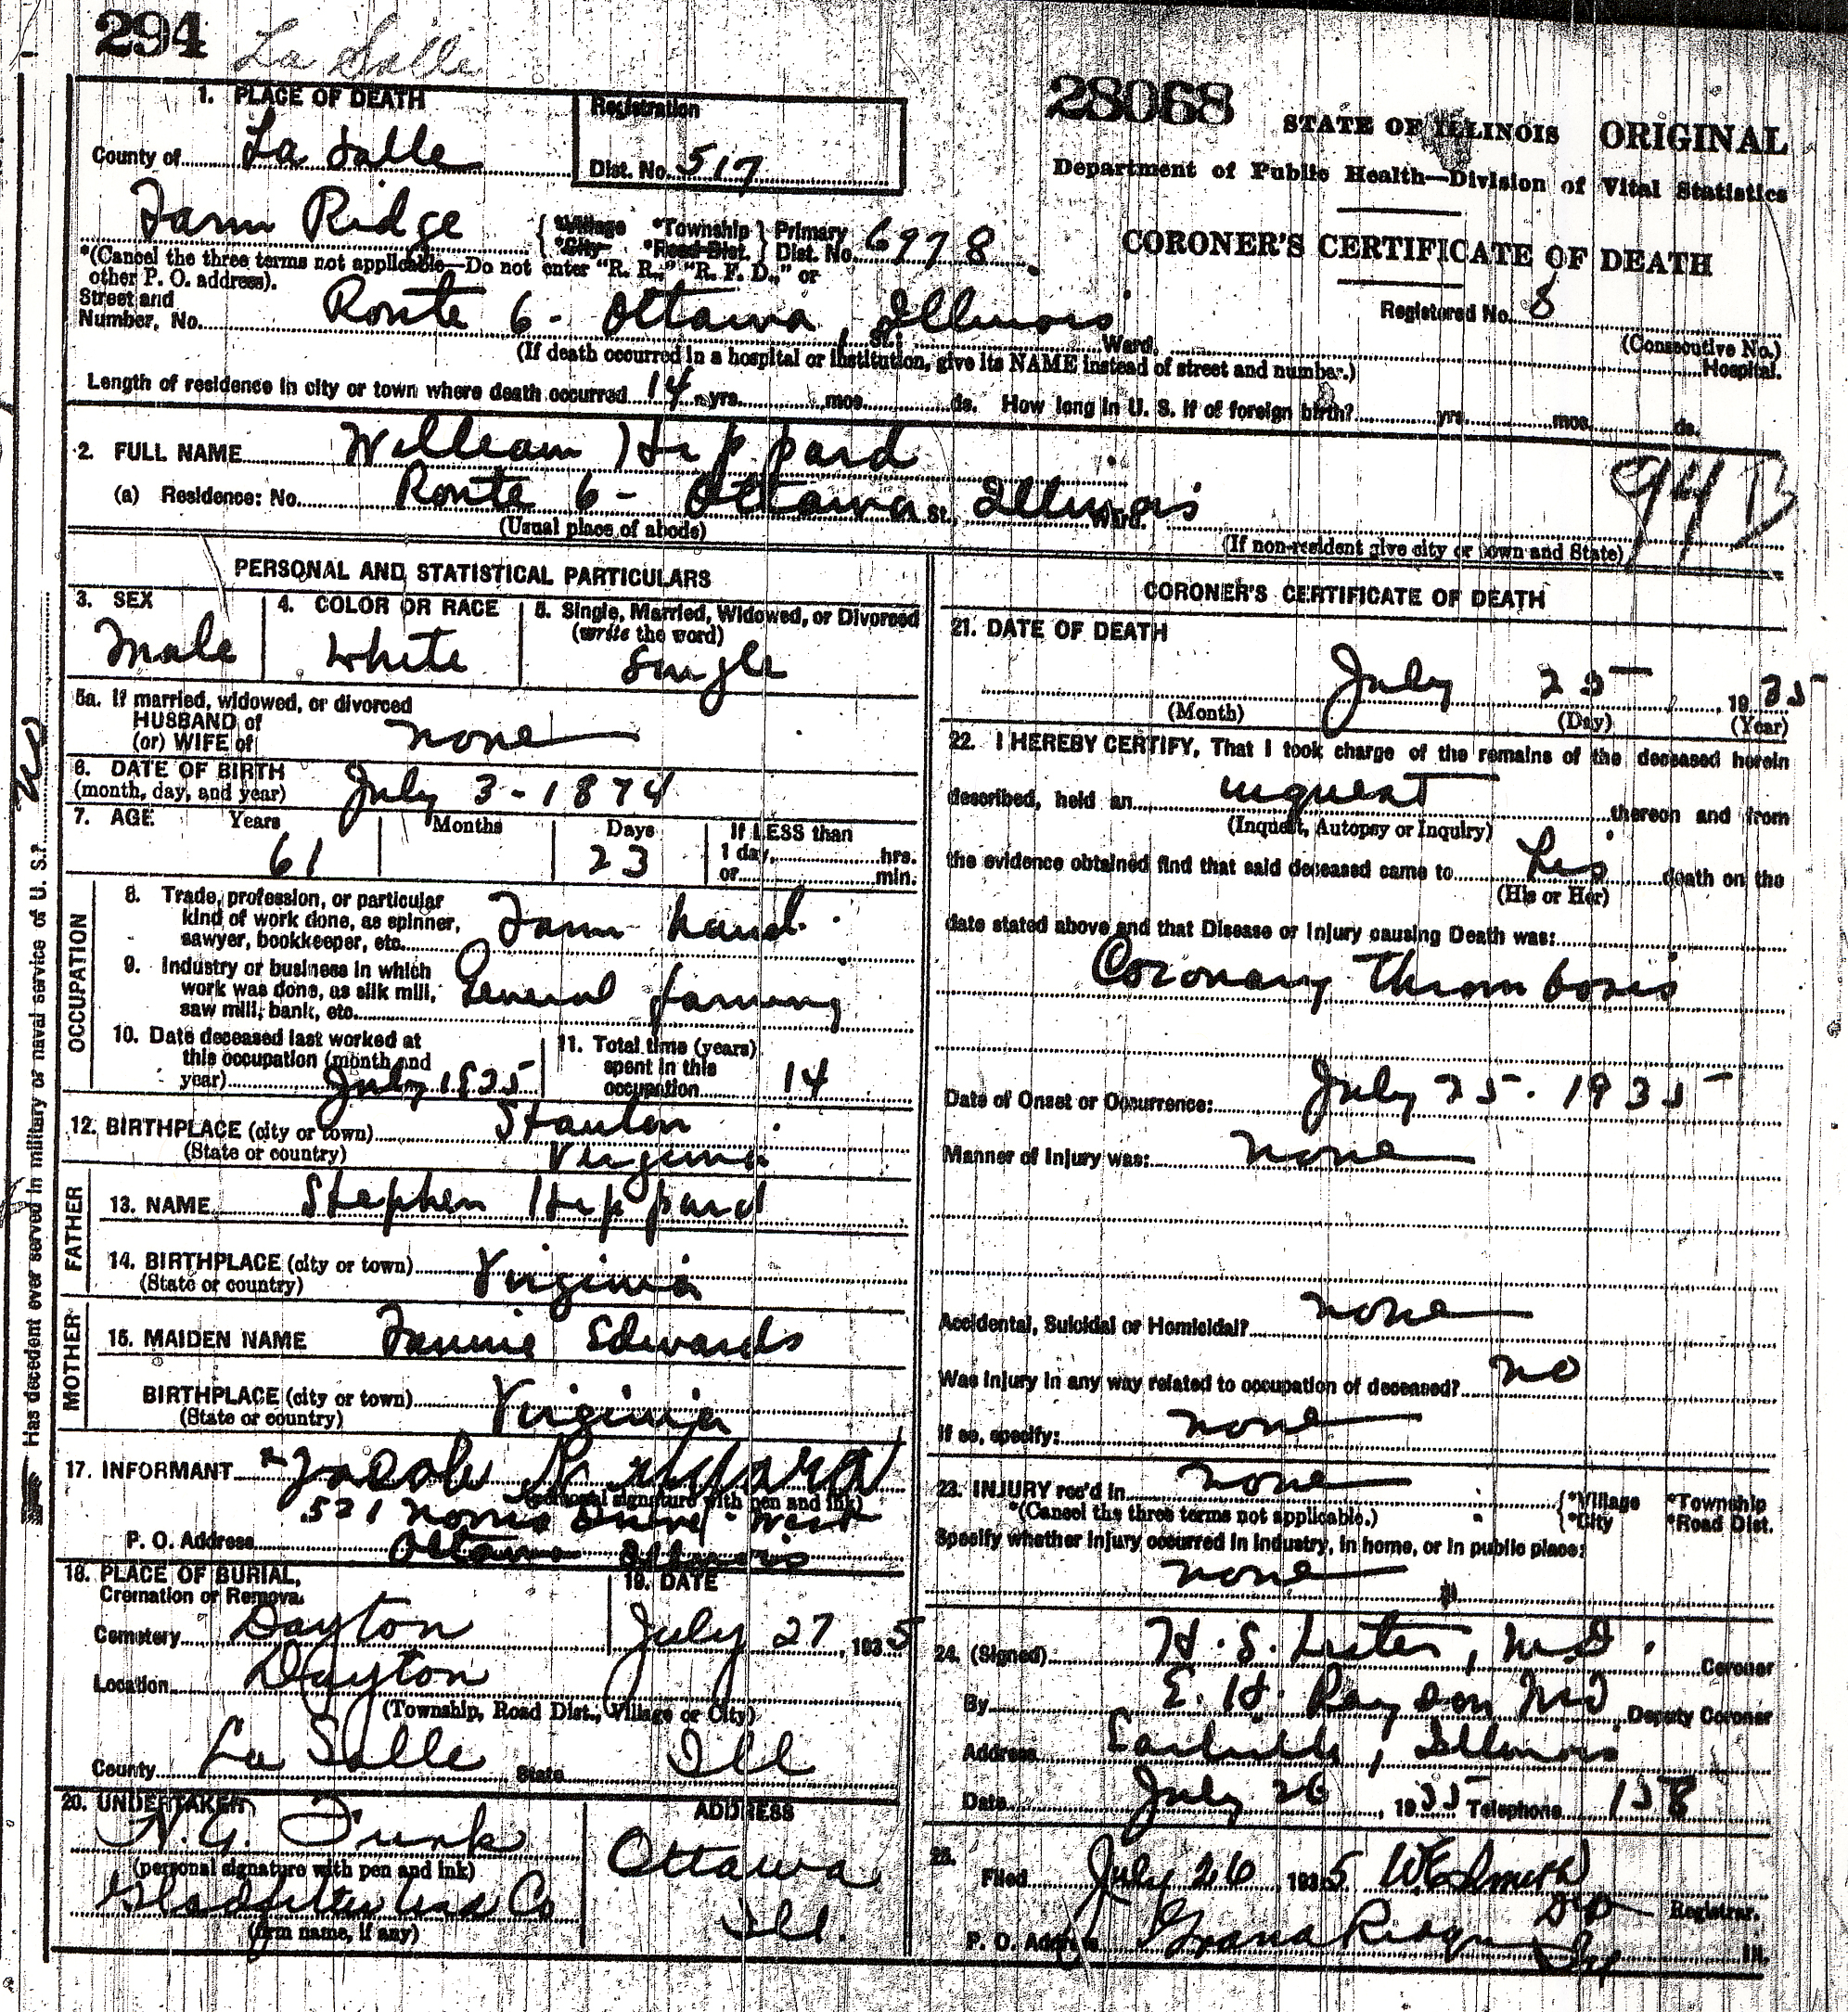 294 La Salle
28068
STATE OF ILLINOIS ORIGINAL
Department of Public Health—Division of Vital Statistics
CORONER'S CERTIFICATE OF DEATH
Registered No. 8
(Consecutive No.)
1. PLACE OF DEATH
County of La Salle
Registration
Dist. No. 517
Farm Ridge { *Village *Township } Primary
*City *Road Dist. Dist. No. 6978
*(Cancel the three terms not applicable—Do not enter "R. R.," "R. F. D.," or
other P. O. address).
Street and
Number, No. Route 6 - Ottawa, Illinois St.; Ward, Hospital.
(If death occurred in a hospital or institution, give its NAME instead of street and number.)
Length of residence in city or town where death occurred 14 yrs. mos. ds. How long in U. S. if of foreign birth? yrs. mos. ds.
2. FULL NAME William Heppard
(a) Residence: No. Route 6 - Ottawa St., Illinois Ward.
(Usual place of abode)
(If non-resident give city or town and State)
94 B
PERSONAL AND STATISTICAL PARTICULARS
3. SEX
Male
4. COLOR OR RACE
White
5. Single, Married, Widowed, or Divorced
(write the word)
Single
5a. If married, widowed, or divorced
HUSBAND of
(or) WIFE of none
6. DATE OF BIRTH
(month, day, and year) July 3 - 1874
7. AGE Years Months Days If LESS than
61 23 1 day, hrs.
or min.
OCCUPATION
8. Trade, profession, or particular
kind of work done, as spinner,
sawyer, bookkeeper, etc. Farm hand.
9. Industry or business in which
work was done, as silk mill,
saw mill, bank, etc. General farming
10. Date deceased last worked at
this occupation (month and
year) July 1935
11. Total time (years)
spent in this
occupation 14
12. BIRTHPLACE (city or town) Stanton
(State or country) Virginia
FATHER
13. NAME Stephen Heppard
14. BIRTHPLACE (city or town)
(State or country) Virginia
MOTHER
15. MAIDEN NAME Fannie Edwards
BIRTHPLACE (city or town)
(State or country) Virginia
17. INFORMANT Jacob
(personal signature with pen and ink)
521 Norris Drive - West
P. O. Address Ottawa Illinois
18. PLACE OF BURIAL,
Cremation or Removal
Cemetery Dayton
19. DATE
July 27, 1935
Location Dayton
(Township, Road Dist., Village or City)
County La Salle State Ill
20. UNDERTAKER
N. G. Funk
(personal signature with pen and ink)
(firm name, if any)
ADDRESS
Ottawa
Ill.
Has decedent ever served in military or naval service of U. S.?
CORONER'S CERTIFICATE OF DEATH
21. DATE OF DEATH
July 25, 1935
(Month) (Day) (Year)
22. I HEREBY CERTIFY, That I took charge of the remains of the deceased herein
described, held an inquest thereon and from
(Inquest, Autopsy or Inquiry)
the evidence obtained find that said deceased came to his death on the
(His or Her)
date stated above and that Disease or Injury causing Death was:
Coronary Thrombosis
Date of Onset or Occurrence: July 25. 1935
Manner of Injury was: none
Accidental, Suicidal or Homicidal? none
Was injury in any way related to occupation of deceased? no
If so, specify: none
23. INJURY rec'd in none { *Village *Township
*(Cancel the three terms not applicable.) *City *Road Dist.
Specify whether injury occurred in industry, in home, or in public place:
none
24. (Signed) H. S. Lester, M.D. Coroner
By E. H. Raydon MD Deputy Coroner
Address Earlville, Illinois
Date July 26, 1935 Telephone 158
25.
Filed July 26 1935 W E Smith
Registrar.
P. O. Address Grand Ridge Ill.